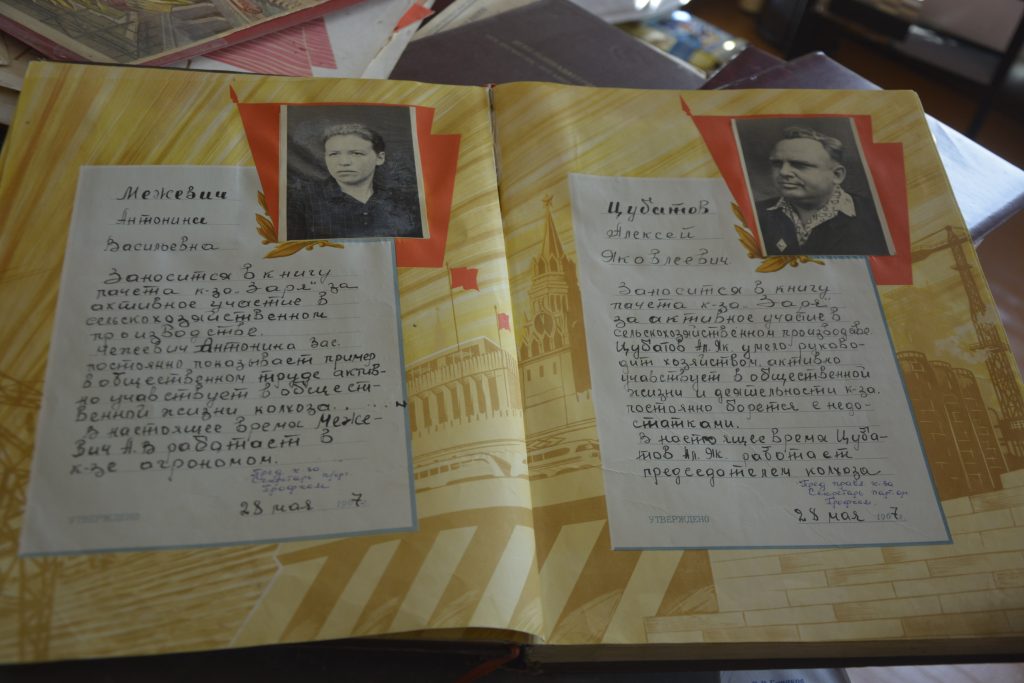 Межевич
Антонина
Васильевна
Заносится в книгу
почета к-за „Заря" за
активное участие в
сельскохозяйственном
производстве.
Межевич Антонина Вас.
постоянно показывает пример
в общественном труде актив-
но участвует в общест-
венной жизни колхоза.
В настоящее время Меже-
вич А.В работает в
к-зе агрономом.
Пред. к-за
Секретарь п/ор.
Профком
УТВЕРЖДЕНО
28 мая 1967г.
Цубатов
Алексей
Яковлеевич
Заносится в книгу
почета к-за „Заря"
за активное участие в
сельскохозяйственном производстве.
Цубатов Ал. Як умело руково-
дит хозяйством, активно
участвует в общественной
жизни и деятельности к-за.
постоянно борется с недо-
статками.
В настоящее время Цуба-
тов Ал. Як работает
председателем колхоза
Пред. правл к-за
Секретарь парт ор
Профком
УТВЕРЖДЕНО
28 мая 1967г.